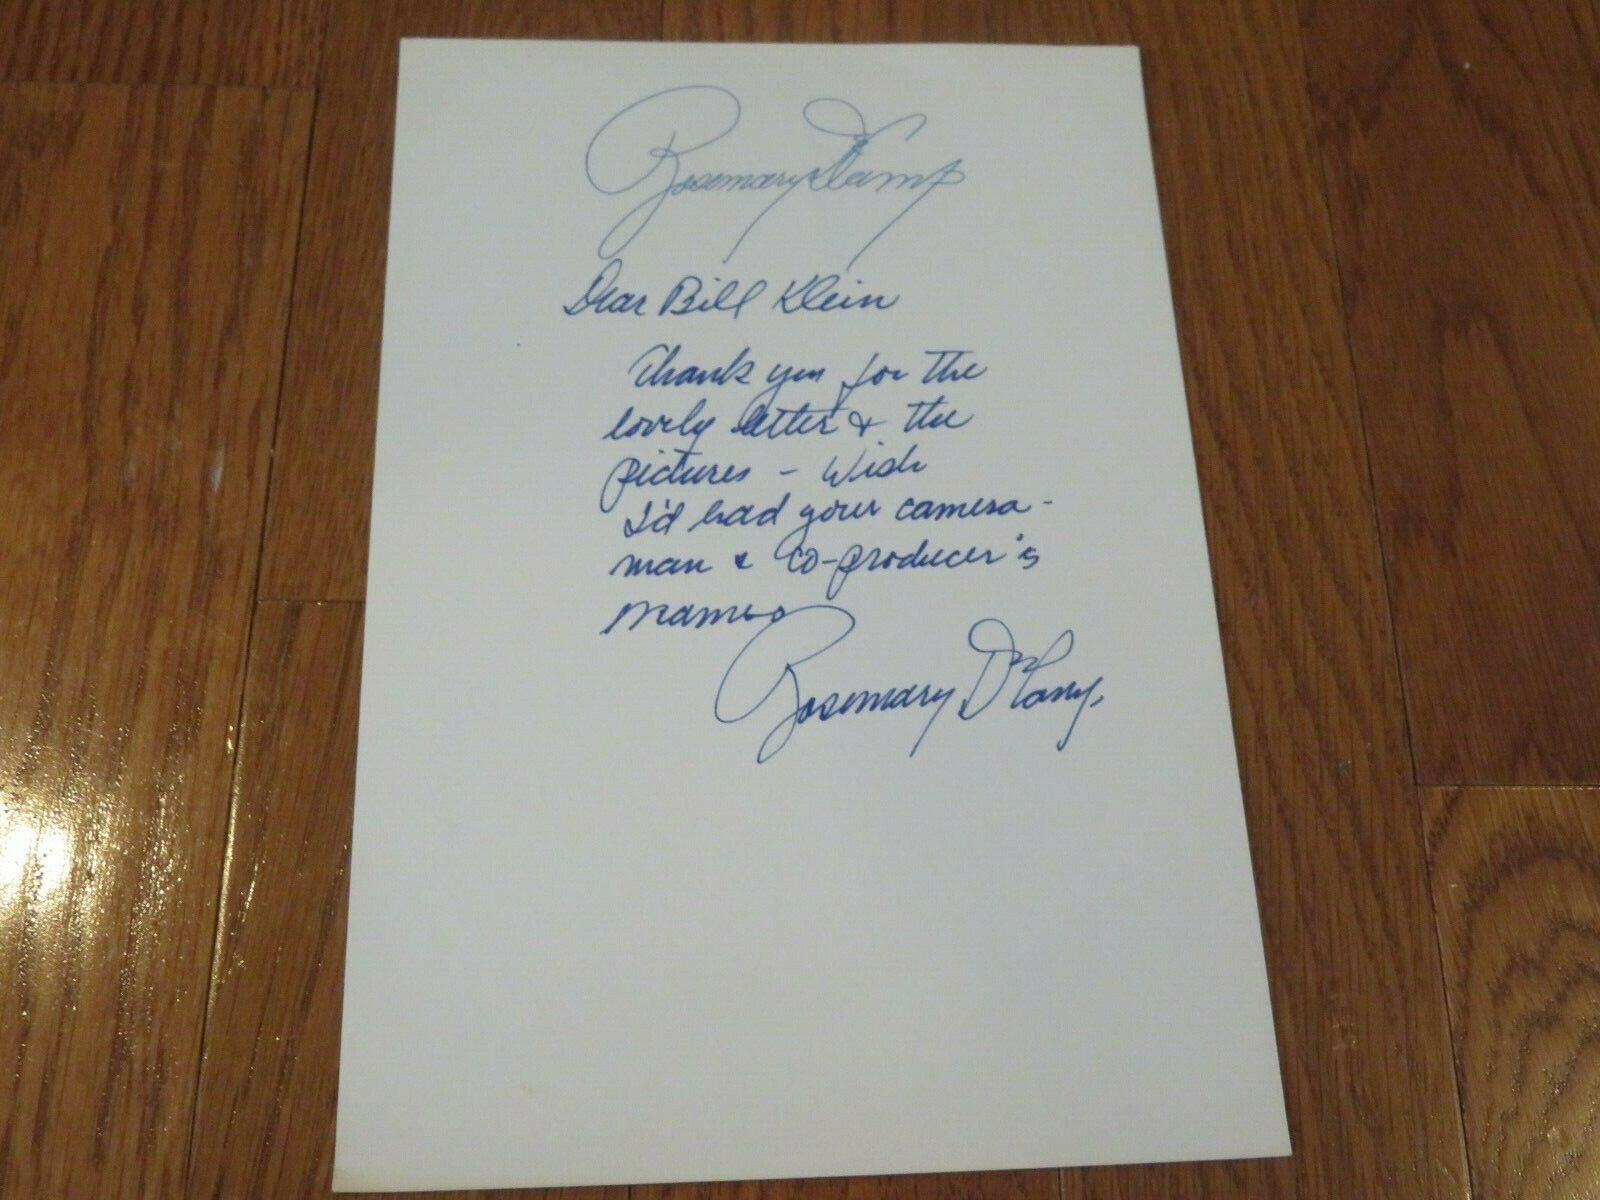 Rosemary DeCamp
Dear Bill Klein
Thank you for the
lovely letter & the
pictures - Wish
I'd had your camera-
man & co-producer's
names
Rosemary DeCamp